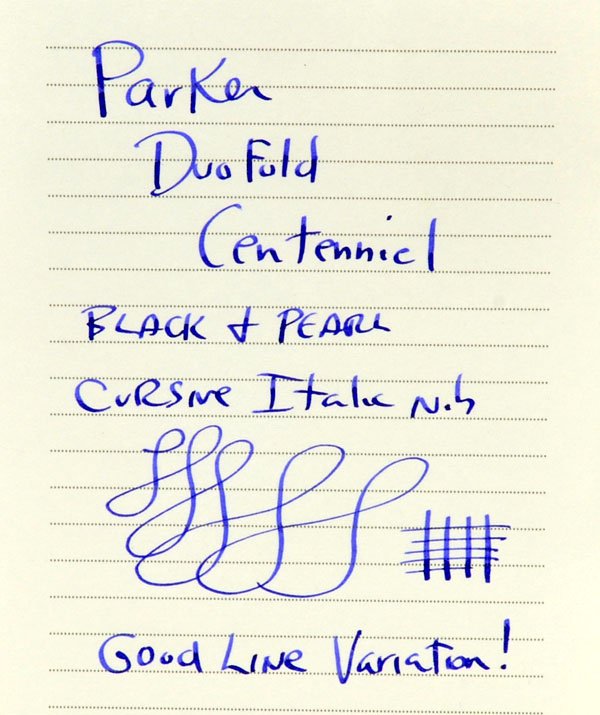 Parker
DuoFold
Centennial
BLACK & PEARL
CURSIVE Italic Nib
Good LINE Variation!